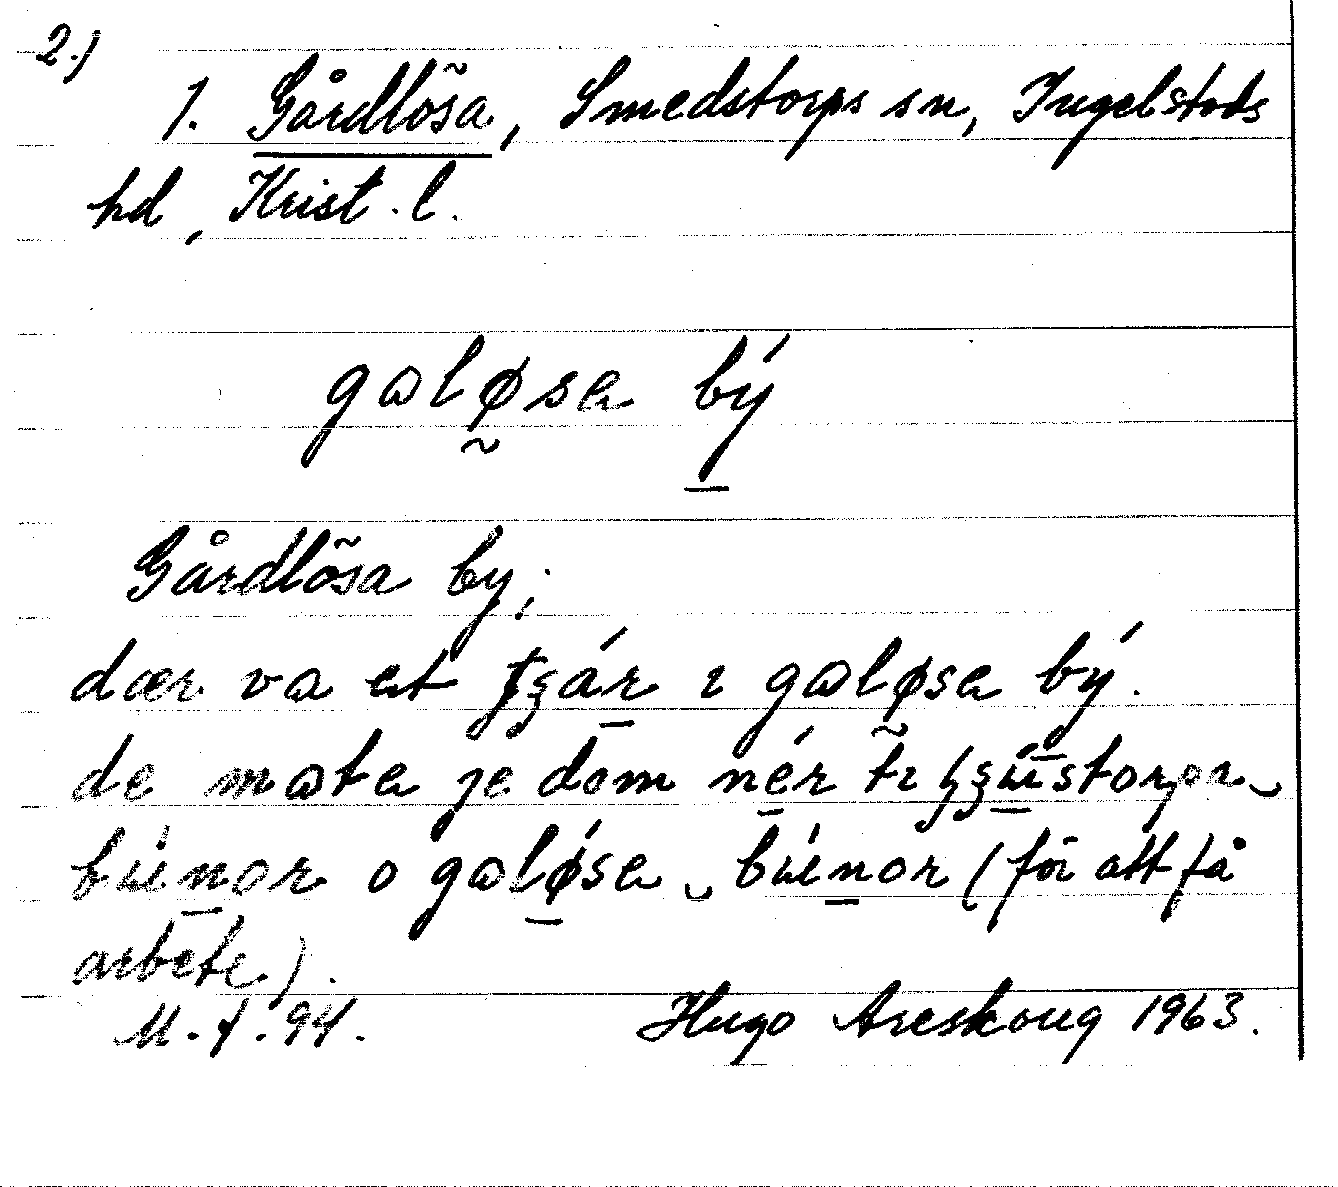 2.)
1. Gårdlösa, Smedstorps sn, Ingelstads
hd, Krist. l.
galøsa bý
Gårdlösa by;
dær va et i galøsa bý.
de mata je dom nér ti
búnor o galǿsa búnor (för att få
arbete).
M. f. 94. Hugo Areskoug 1963.